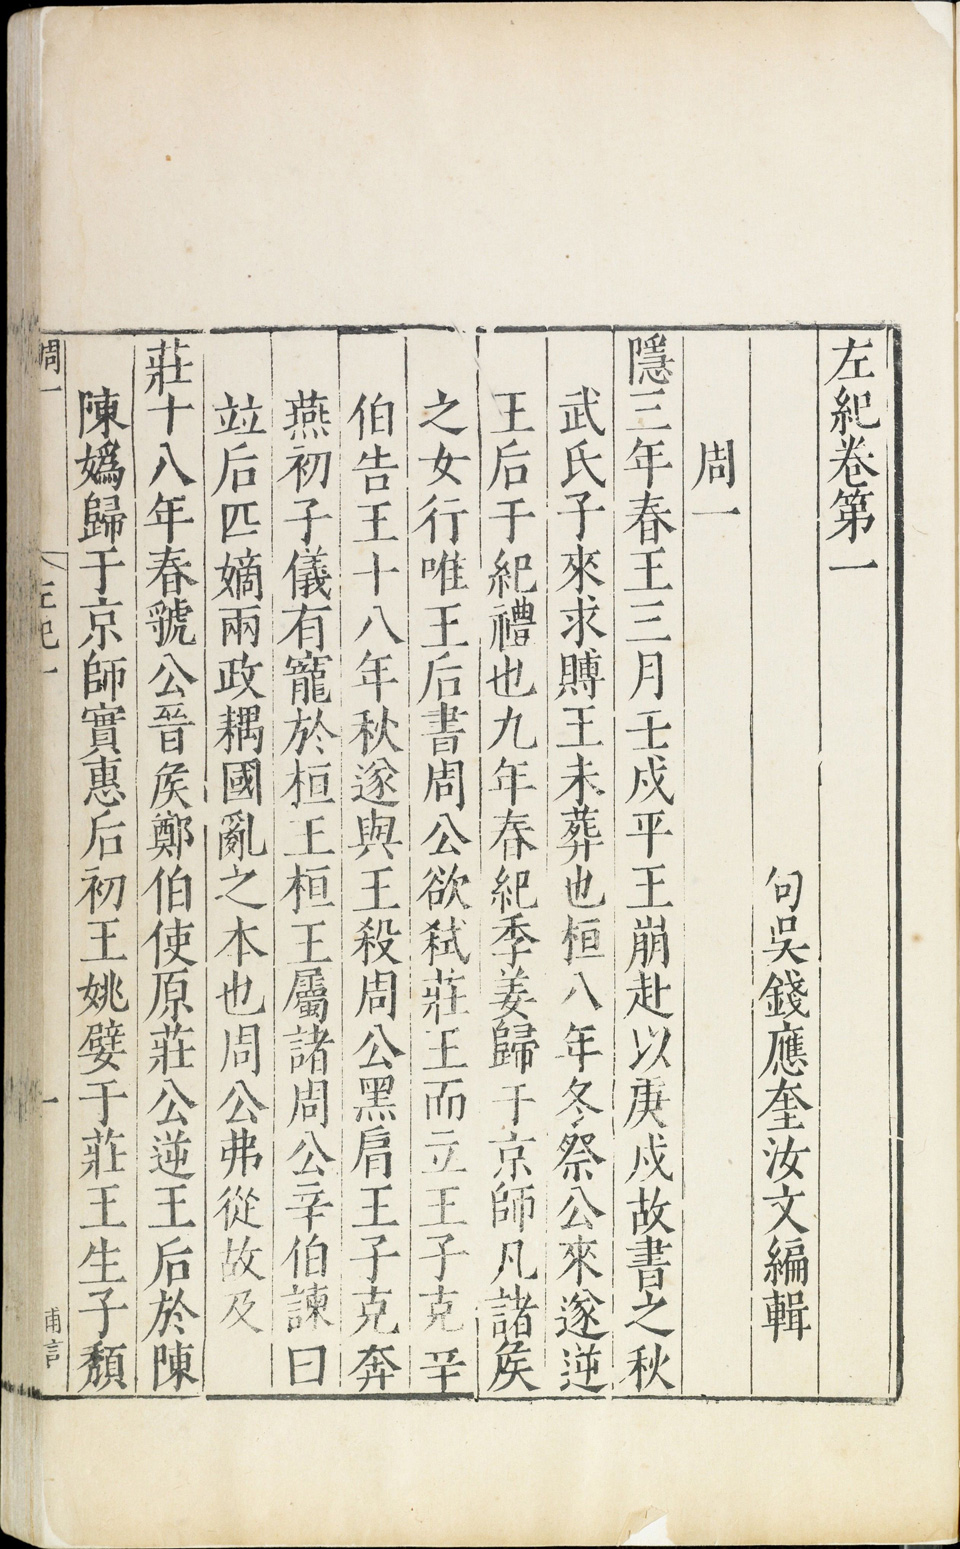 左紀卷第一
句吳錢應奎汝文編輯
周一
隱三年春王三月壬戌平王崩赴以庚戌故書之秋
武氏子來求賻王未葬也桓八年冬祭公來遂逆
王后于紀禮也九年春紀季姜歸于京師凡諸矦
之女行唯王后書周公欲弑莊王而立王子克辛
伯告王十八年秋遂與王殺周公黑肩王子克奔
燕初子儀有寵於桓王桓王屬諸周公辛伯諫曰
竝后匹嫡兩政耦國亂之本也周公弗從故及
莊十八年春虢公晉矦鄭伯使原莊公逆王后於陳
陳媯歸于京師實惠后初王姚嬖于莊王生子頹
周一
左紀一
一
甫言